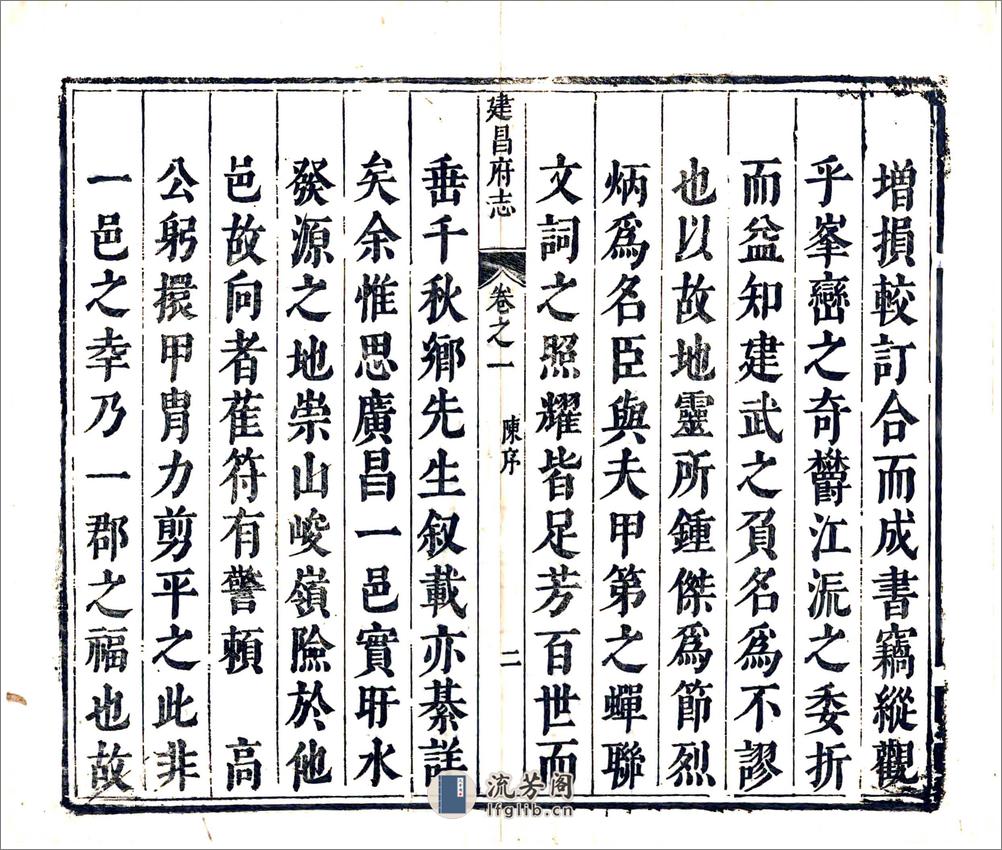 增損較訂合而成書竊縱觀
乎峯巒之奇欝江派之委折
而益知建武之負名爲不謬
也以故地靈所鍾傑爲節烈
炳爲名臣與夫甲第之蟬聯
文詞之照耀皆足芳百世而
建昌府志 卷之一 陳序 二
垂千秋鄉先生叙載亦綦詳
矣余惟思廣昌一邑實盱水
發源之地崇山峻嶺險於他
邑故向者萑符有警頼 高
公躬擐甲胄力剪平之此非
一邑之幸乃一郡之福也故
流芳阁
lfglib.cn